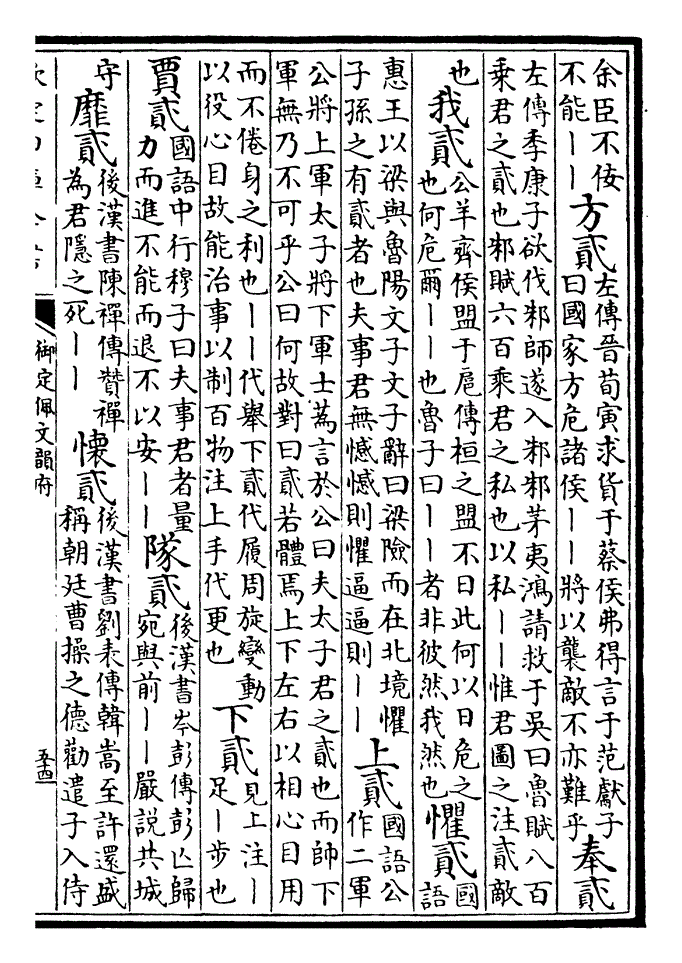 余臣不佞
不能丨丨
方貳
左傳晉荀寅求貨于蔡侯弗得言于范獻子
曰國家方危諸侯丨丨將以襲敵不亦難乎
奉貳
左傳季康子欲伐邾師遂入邾邾茅夷鴻請救于吳曰魯賦八百
乗君之貳也邾賦六百乗君之私也以私丨丨惟君圖之注貳敵
也
我貳
公羊齊侯盟于扈傳桓之盟不日此何以日危之
也何危爾丨丨也魯子曰丨丨者非彼然我然也
懼貳
國
語
惠王以梁與魯陽文子文子辭曰梁險而在北境懼
子孫之有貳者也夫事君無憾憾則懼逼逼則丨丨
上貳
國語公
作二軍
公將上軍太子將下軍士蒍言於公曰夫太子君之貳也而師下
軍無乃不可乎公曰何故對曰貳若體焉上下左右以相心目用
而不倦身之利也丨丨代舉下貳代履周旋變動
以役心目故能治事以制百物注上手代更也
下貳
見上注丨
足丨步也
賈貳
國語中行穆子曰夫事君者量
力而進不能而退不以安丨丨
隊貳
後漢書岑彭傳彭亡歸
宛與前丨丨嚴說共城
守
靡貳
後漢書陳禪傳贊禪
為君隱之死丨丨
懷貳
後漢書劉表傳韓嵩至許還盛
稱朝廷曹操之德勸遣子入侍
欽定四庫全書
御定佩文韻府
五十四